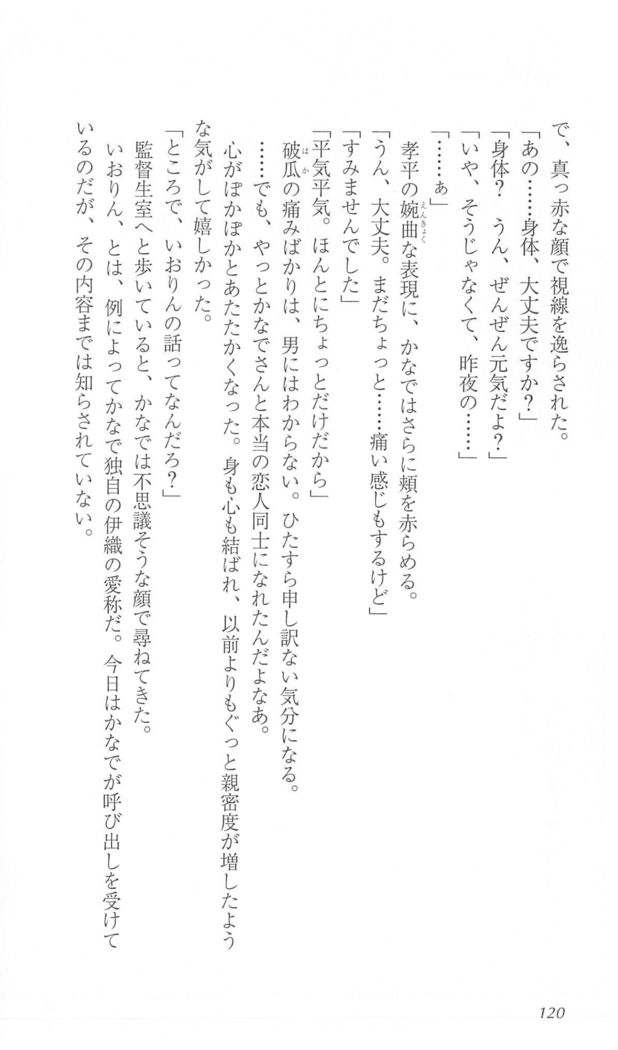 で、真っ赤な顔で視線を逸らされた。
「あの……身体、大丈夫ですか?」
「身体? うん、ぜんぜん元気だよ?」
「いや、そうじゃなくて、昨夜の……」
「……ぁ」
孝平の婉曲な表現に、かなではさらに頬を赤らめる。
えんきょく
「うん、大丈夫。まだちょっと……痛い感じもするけど」
「すみませんでした」
「平気平気。ほんとにちょっとだけだから」
破瓜の痛みばかりは、男にはわからない。ひたすら申し訳ない気分になる。
はか
……でも、やっとかなでさんと本当の恋人同士になれたんだよなあ。
心がぽかぽかとあたたかくなった。身も心も結ばれ、以前よりもぐっと親密度が増したよう
な気がして嬉しかった。
「ところで、いおりんの話ってなんだろ?」
監督生室へと歩いていると、かなでは不思議そうな顔で尋ねてきた。
いおりん、とは、例によってかなで独自の伊織の愛称だ。今日はかなでが呼び出しを受けて
いるのだが、その内容までは知らされていない。
120